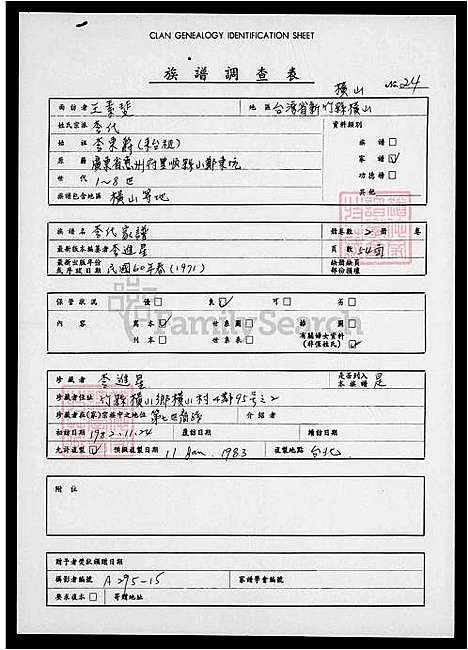 CLAN GENEALOGY IDENTIFICATION SHEET
族譜調查表
橫山 No 24
面訪者 王素斐 地區 台灣省新竹縣橫山
姓氏宗派 李氏 資料類別
始祖 李東蔚(來台祖) 族譜
原籍 廣東省惠州府 家譜
世代 1~8世 功德榜
族譜包含地區 橫山等地 其他
族譜名 李氏家譜 冊卷數 2 冊 卷
最新版本編纂者 李進星 頁數 54面
最新出版年份或序跋日期 民國60年春(1971) 缺冊缺頁部份損壞
保管狀況 優 良 可 劣
內容 寫本 世系圖 插圖 有關婦女資料(非僅姓氏)
刊本 世系表
FamilySearch
珍藏者 李進星 是否列入本族譜 是
珍藏者住址 竹縣橫山鄉橫山村4鄰95号之2
珍藏者在(家)宗族中之地位 第七世裔孫 介紹者
初訪日期 1982.11.24 複訪日期 增訪日期
允許複製 預擬複製日期 11 Jan. 1983 複製地點 台北
附註
贈予者獎狀頒贈日期
攝影者編號 A295-15 家譜學會編號
要求複本 寄贈地址